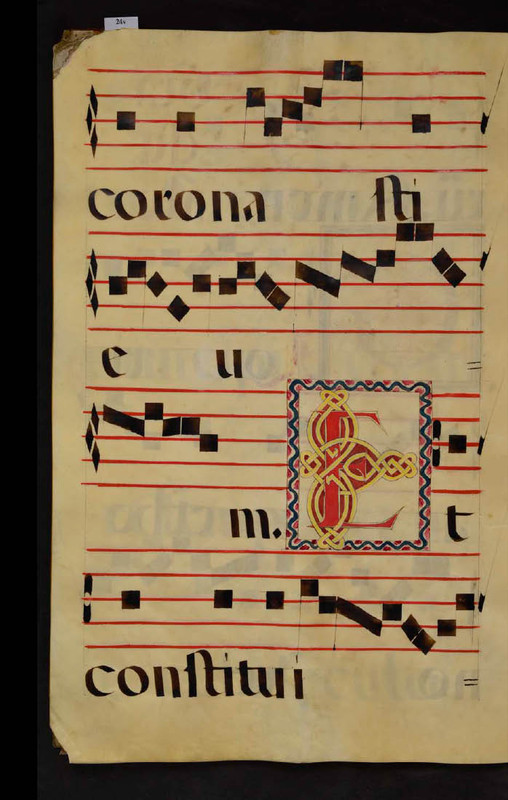 24v
corona sti
e u =
m. Et
constitui =